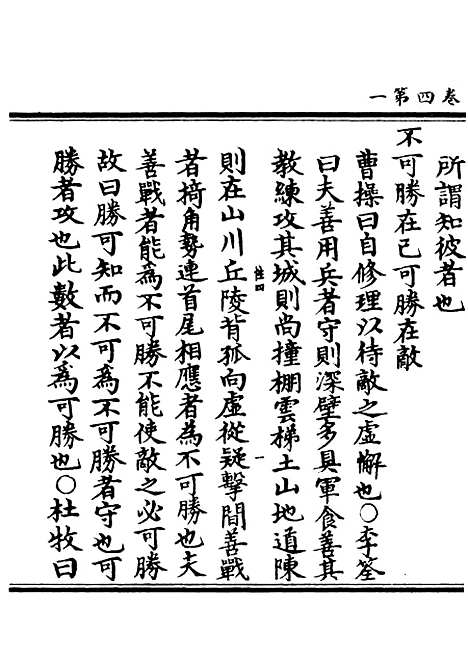 卷四第一
所謂知彼者也
不可勝在己可勝在敵
曹操曰自修理以待敵之虛懈也○李筌
曰夫善用兵者守則深壁多具軍食善其
教練攻其城則尚撞棚雲梯土山地道陳
注四
一
則在山川丘陵背孤向虛從疑擊間善戰
者掎角勢連首尾相應者為不可勝也夫
善戰者能為不可勝不能使敵之必可勝
故曰勝可知而不可為不可勝者守也可
勝者攻也此數者以為可勝也○杜牧曰